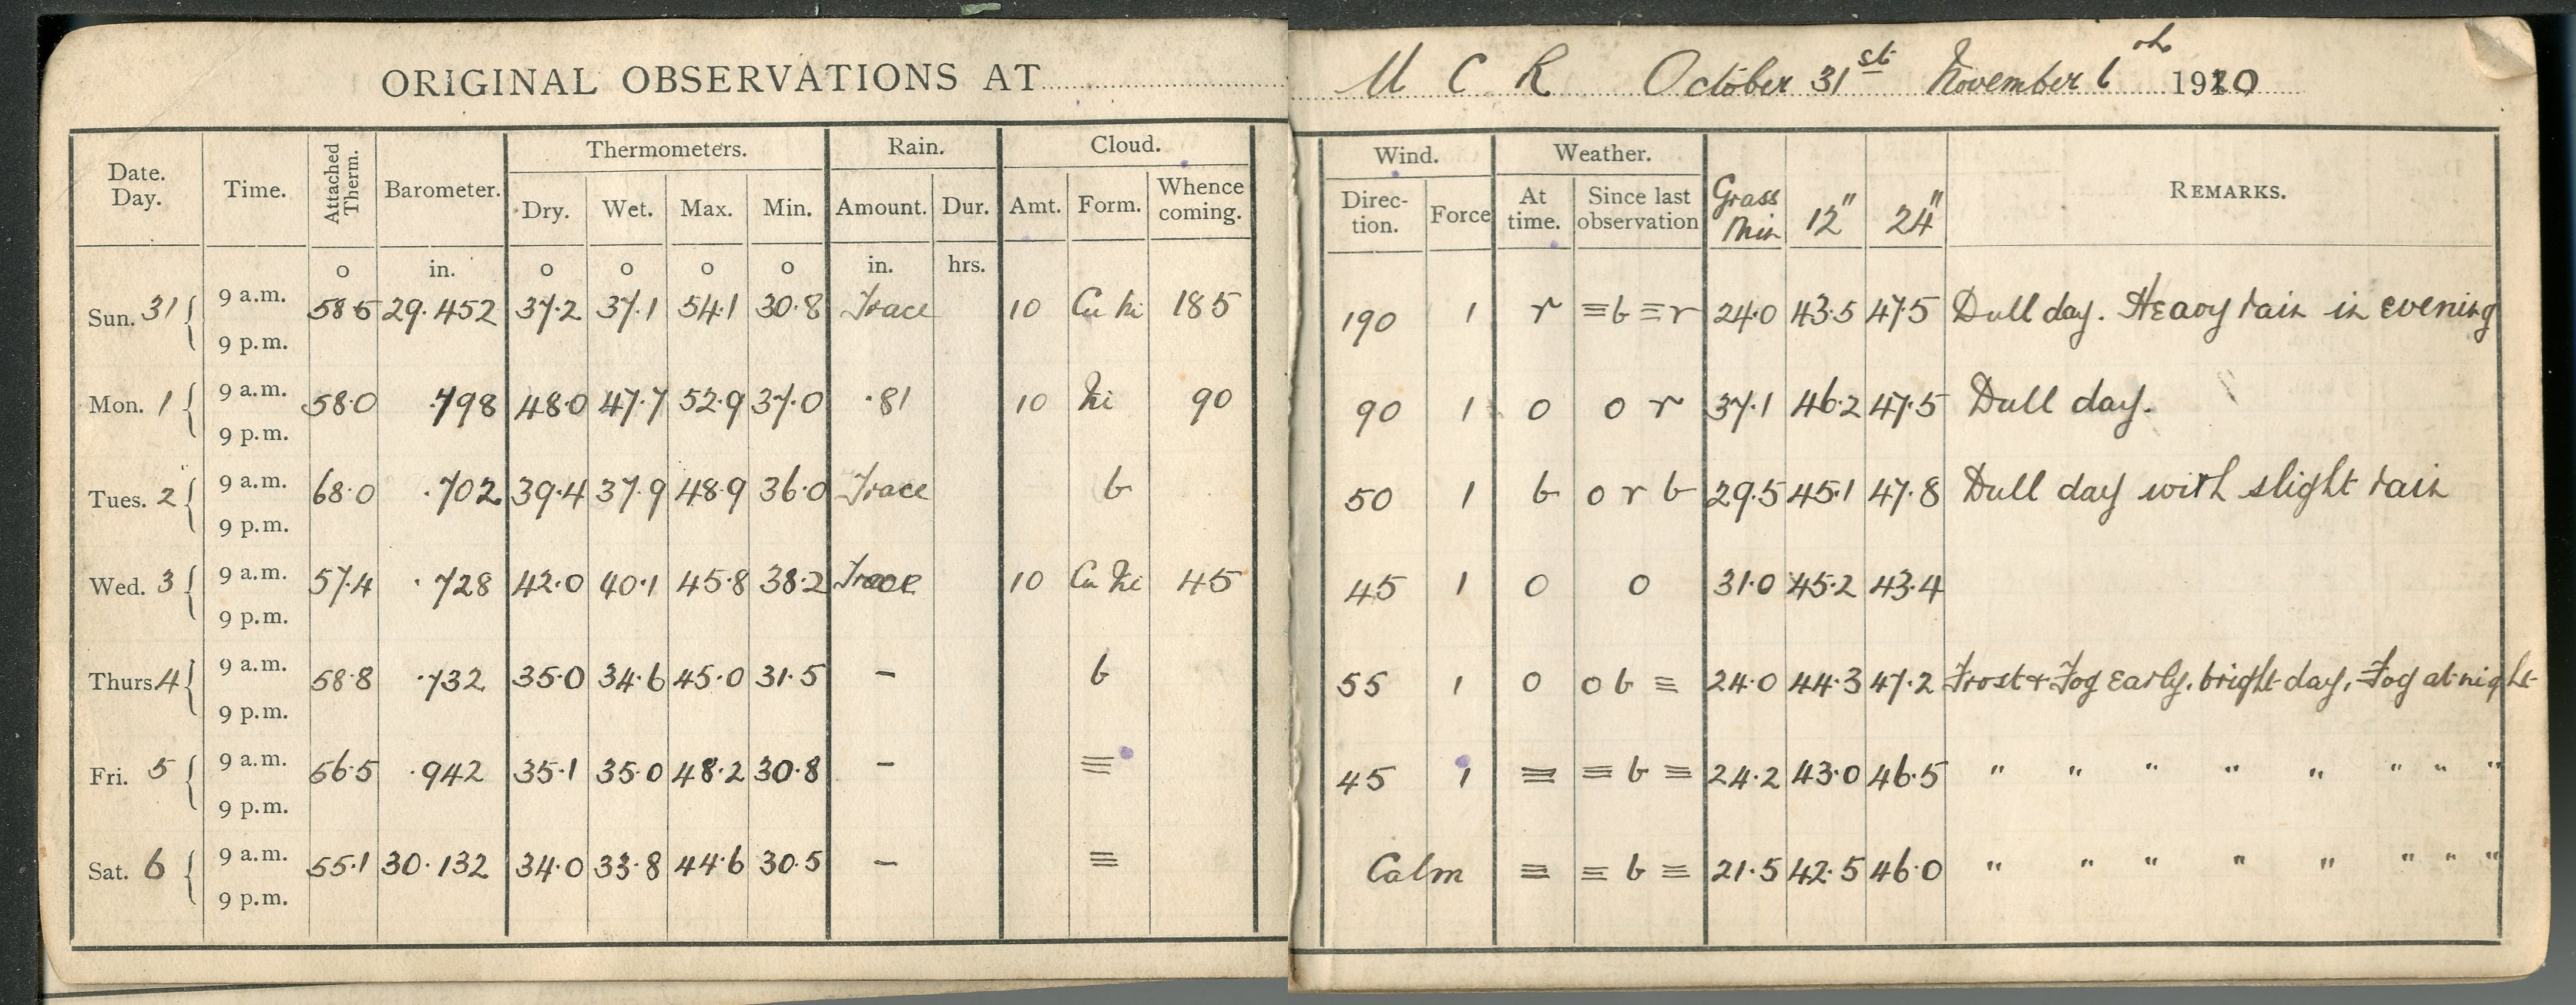 ORIGINAL OBSERVATIONS AT M C R October 31st November 6th 1920
Date. Day. Time. Attached Therm. Barometer. Thermometers. Rain. Cloud. Wind. Weather. Grass Min 12" 24" REMARKS.
Dry. Wet. Max. Min. Amount. Dur. Amt. Form. Whence coming. Direc- tion. Force At time. Since last observation
o in. o o o o in. hrs.
Sun. 31 9 a.m. 58.5 29.452 37.2 37.1 54.1 30.8 Trace 10 Cu Ni 185 190 1 r ≡ b ≡ r 24.0 43.5 47.5 Dull day. Heavy rain in evening
9 p.m.
Mon. 1 9 a.m. 58.0 .798 48.0 47.7 52.9 37.0 .81 10 Ni 90 90 1 o o r 37.1 46.2 47.5 Dull day.
9 p.m.
Tues. 2 9 a.m. 68.0 .702 39.4 37.9 48.9 36.0 Trace b 50 1 b o r b 29.5 45.1 47.8 Dull day with slight rain
9 p.m.
Wed. 3 9 a.m. 57.4 .728 42.0 40.1 45.8 38.2 Trace 10 Cu Ni 45 45 1 o o 31.0 45.2 43.4
9 p.m.
Thurs. 4 9 a.m. 58.8 .732 35.0 34.6 45.0 31.5 — b 55 1 o o b ≡ 24.0 44.3 47.2 Frost & Fog early. bright day, Fog at night
9 p.m.
Fri. 5 9 a.m. 56.5 .942 35.1 35.0 48.2 30.8 — ≡ 45 1 ≡ ≡ b ≡ 24.2 43.0 46.5 " " " " " " " "
9 p.m.
Sat. 6 9 a.m. 55.1 30.132 34.0 33.8 44.6 30.5 — ≡ Calm ≡ ≡ b ≡ 21.5 42.5 46.0 " " " " " " " "
9 p.m.